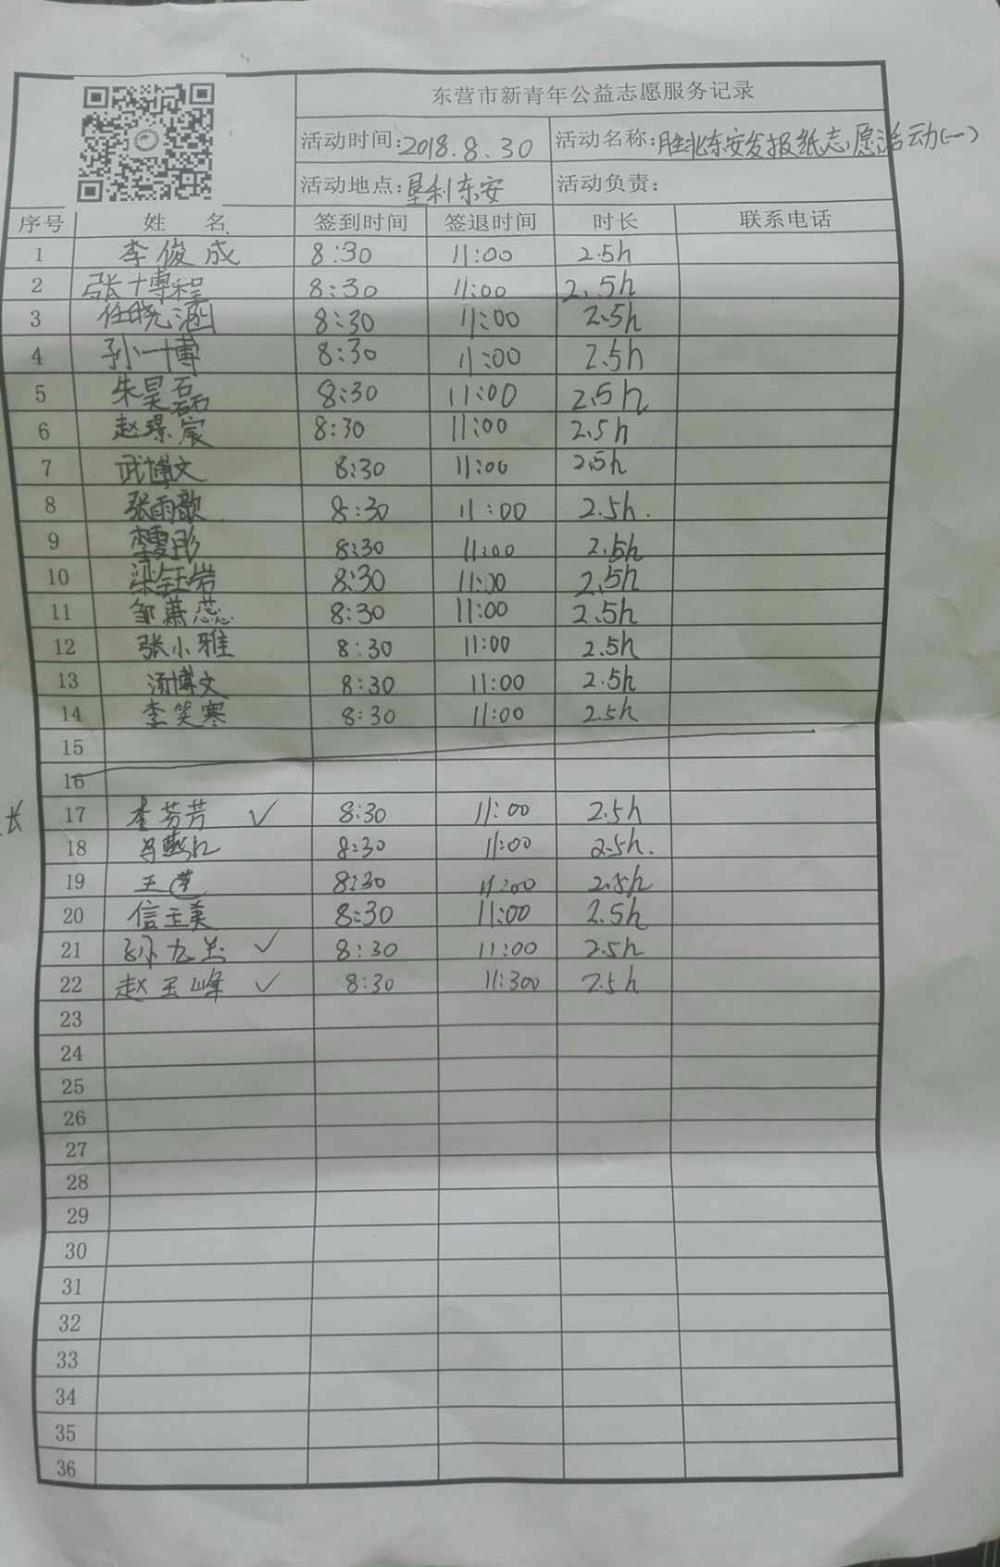 东营市新青年公益志愿服务记录
活动时间:2018.8.30 活动名称:胜北东安发报纸志愿活动(一)
活动地点:垦利东安 活动负责:
序号 姓 名 签到时间 签退时间 时长 联系电话
1 李俊成 8:30 11:00 2.5h
2 张博程 8:30 11:00 2.5h
3 任晓涵 8:30 11:00 2.5h
4 孙一博 8:30 11:00 2.5h
5 朱昊磊 8:30 11:00 2.5h
6 赵璟宸 8:30 11:00 2.5h
7 武博文 8:30 11:00 2.5h
8 张雨歆 8:30 11:00 2.5h.
9 8:30 11:00 2.5h
10 梁钰岩 8:30 11:00 2.5h
11 邹蕙蕊 8:30 11:00 2.5h
12 张小雅 8:30 11:00 2.5h
13 汤博文 8:30 11:00 2.5h
14 李笑寒 8:30 11:00 2.5h
15
16
长 17 李芳芳 ✓ 8:30 11:00 2.5h
18 8:30 11:00 2.5h.
19 8:30 11:00 2.5h
20 信玉美 8:30 11:00 2.5h
21 ✓ 8:30 11:00 2.5h
22 赵玉峰 ✓ 8:30 11:300 2.5h
23
24
25
26
27
28
29
30
31
32
33
34
35
36